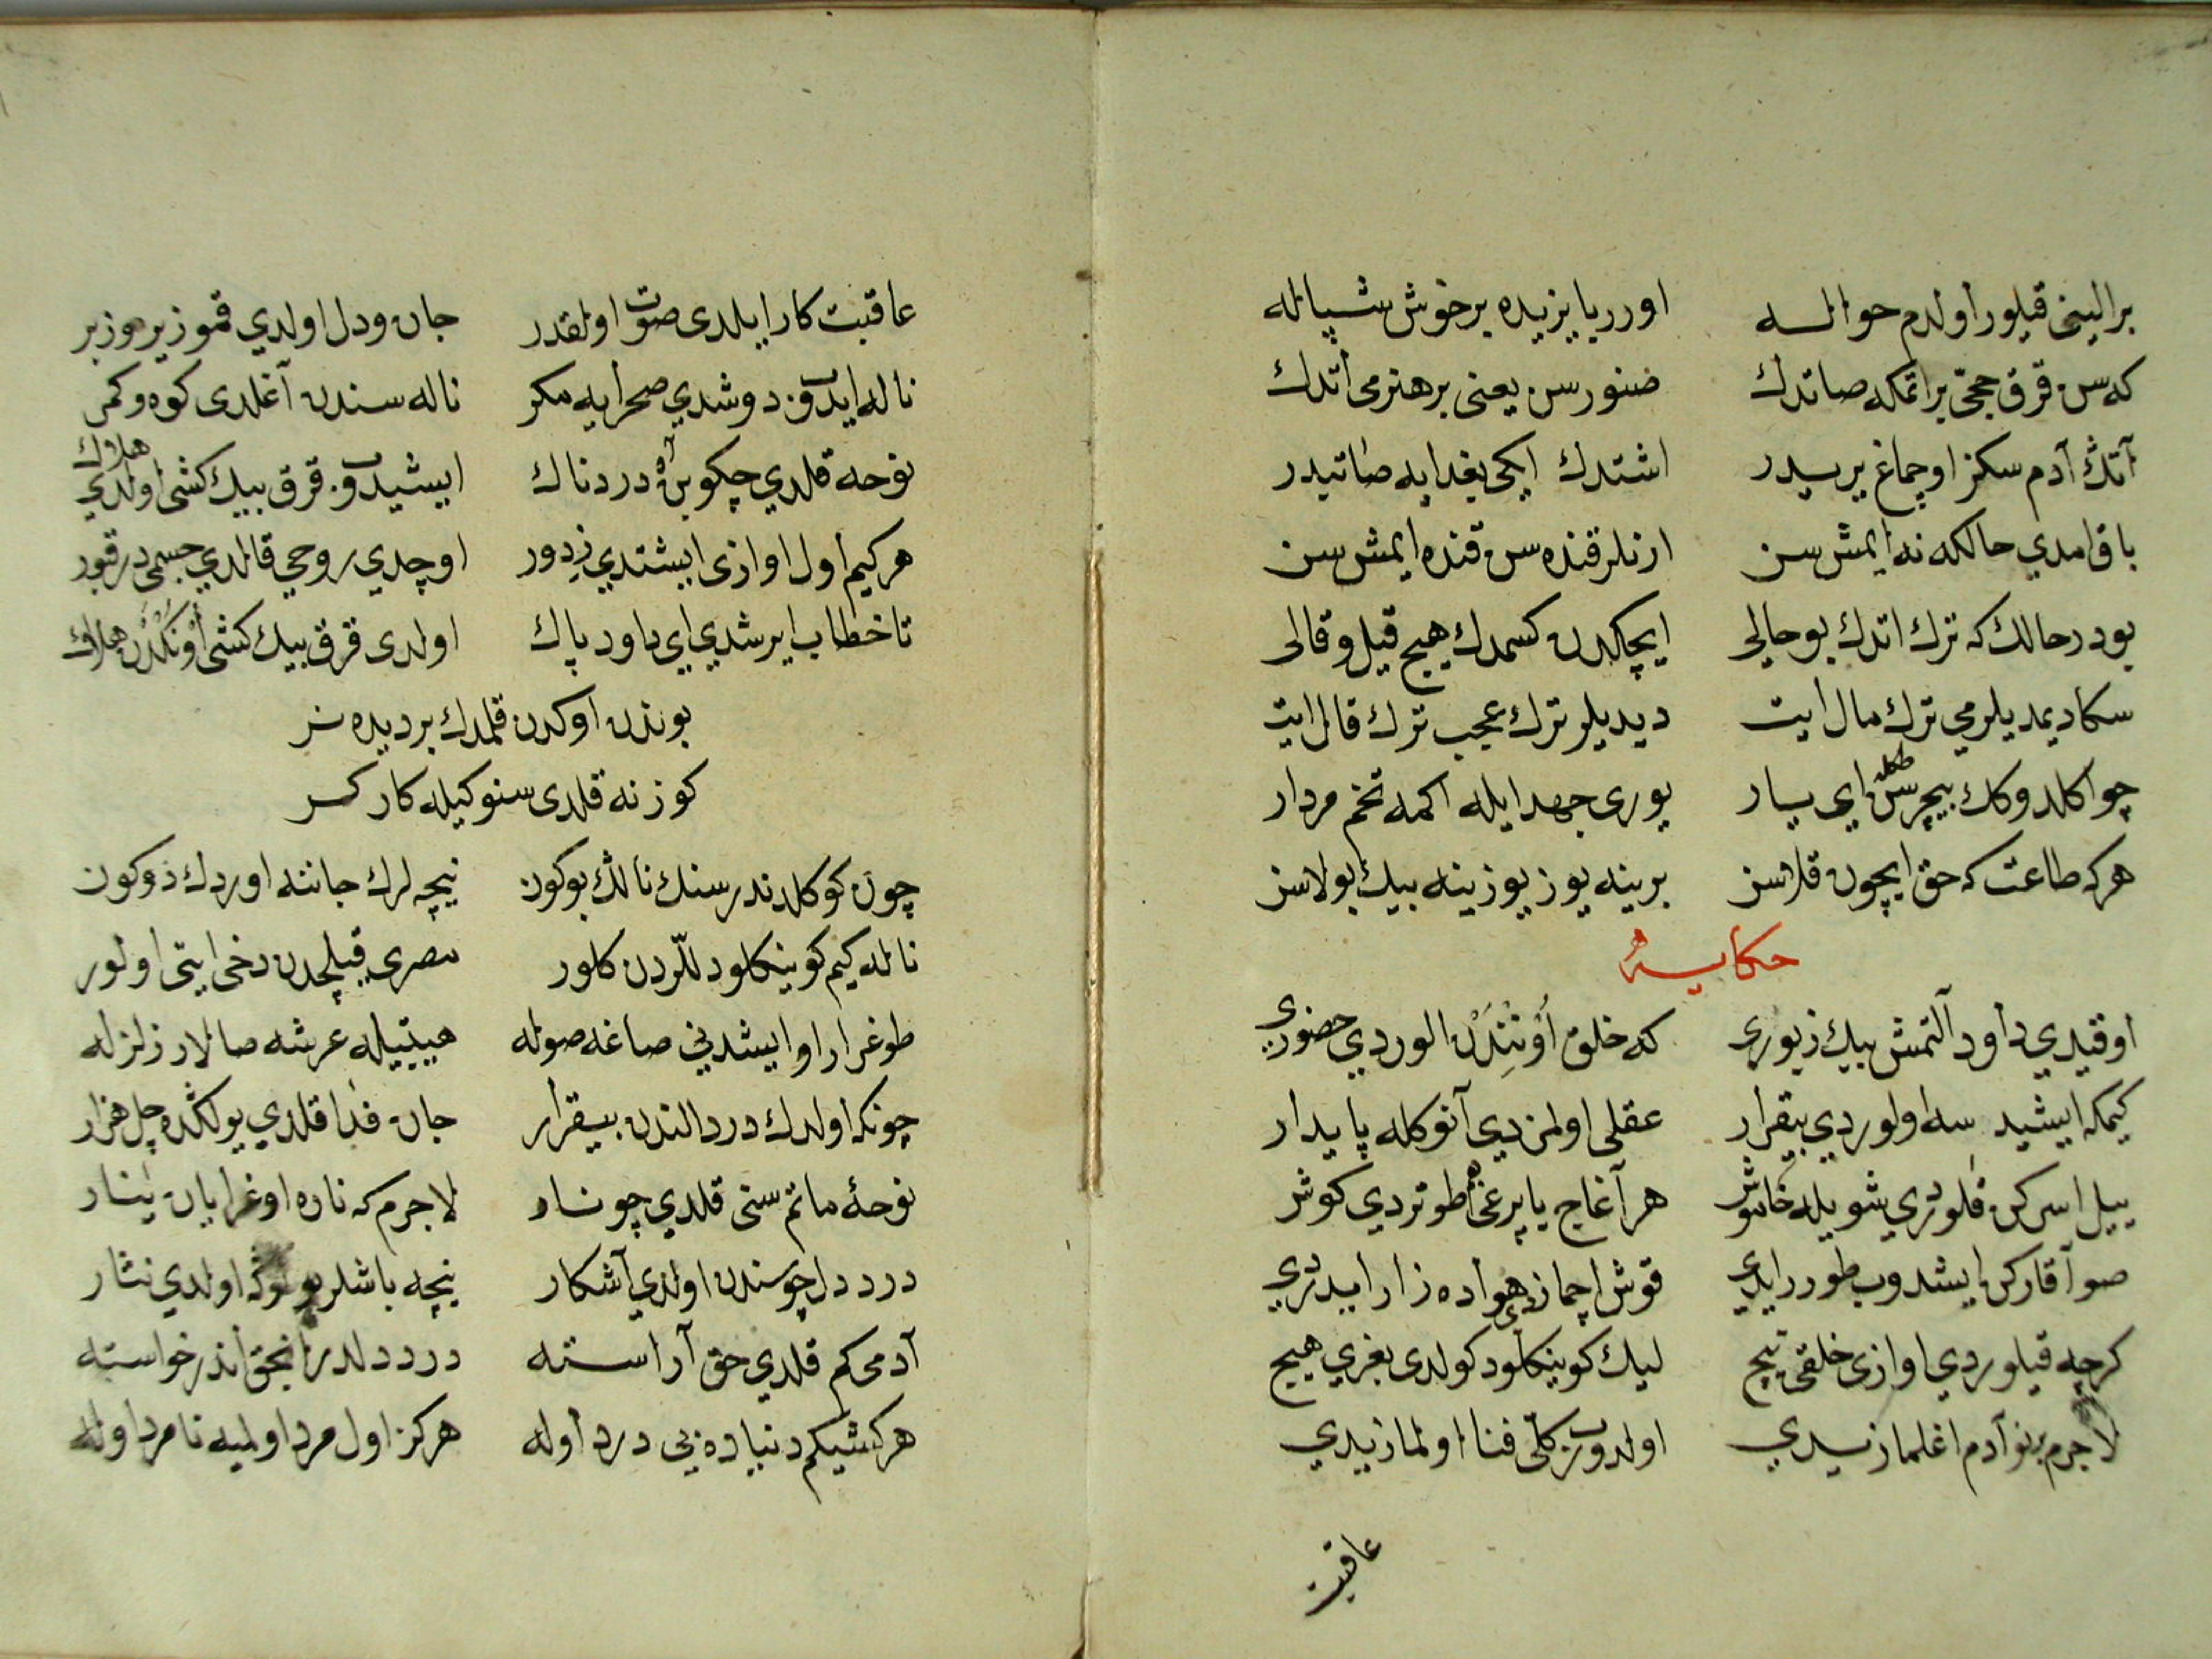 بر الینی قیلور اولدم حواله اورر یا یزیده بر خوش شپاله
که سن قرق حجّی بر اتمکه صاتدك صنورسن یعنی بر هنرمی اتدك
آتڭ آدم سکز اوچماغ یرسیدر اشتدك ایکی بغدایه صاتیدر
باق امدي حالکه نه ایمش سن ارنلر قنده سن قنده ایمش سن
بودر حالك که ترك اتدك بو حالی ایچکدن کسمدك هیچ قیل و قالی
سکا دیمدیلرمی ترك مال ایت دیدیلر ترك عجب ترك قال ایت
چو اکلدوکك بیچرسن ای یار یوری جهد ایله اکمه تخم مردار
هر که طاعت که حق ایچون قلاسز برینه یوز یوزینه بیك بولاسز
حکایت
اوقیدي داود آلتمش بیك زبوری که خلق اۉنندن الوردي حضوری
کیمکه ایشیدسه اولوردي بیقرار عقلی اولمزدي آنوکله پایدار
ییل اسرکن قلوردي شویله خاموش هر آغاج یاپرغی طوتردي کوش
صو آقارکن ایشدوب طورر ایدي قوش اچمازدی هواده زار ایدردي
کرچه قیلوردي اوازی خلقی هیچ لیك کوینکلود کولدی بغري هیچ
لا جرم بنو آدم اغلمازیدي اولدوب کلّی فنا اولمازیدي
عاقبت
عاقبت کار ایلدی صوت اولقدر جان و دل اولدي قمو زیر و زبر
ناله ایدوب دوشدي صحرایه مکر ناله سندن آغلدی کوه و کمر
نوحه قلدي چکوبن آه دردناك ایشیدوب قرق بیك کشی اولدي هلاك
هر کیم اول اوازی ایشتدي ز دور اوچدي روحي قالدي جسمی در قبور
تا خطاب ایرشدي ای داود پاك اولدی قرق بیك کشی اۉنکدن هلاك
بوندن اوکدن قلمدك بر دیده تر
کوز نه قلدی سنوکیله کارکر
چون کوکلدندر سنك نالڭ بوکون نیچه لرك جاننه اوردك دوکون
ناله کیم کوینکلود للّردن کلور مصري قیلچدن دخی ایتی اولور
طوغرار او ایشدنی صاغه صوله هیبتیله عرشه صالار زلزله
چونکه اولدك درد النندن بیقرار جان فدا قلدي یولکڭده چل هزار
نوحۀ ماتم سنی قلدي چو نار لا جرم که ناره اوغرایان ینار
درد دل چو سندن اولدي آشکار نیچه باشلر بو یولوکه اولدي نثار
آدمی کم قلدي حق آراسته درد دلدر انجق اندر خواسته
هر کشیکم دنیاده بی درد اوله هرکز اول مرد اولمیه نامرد اوله